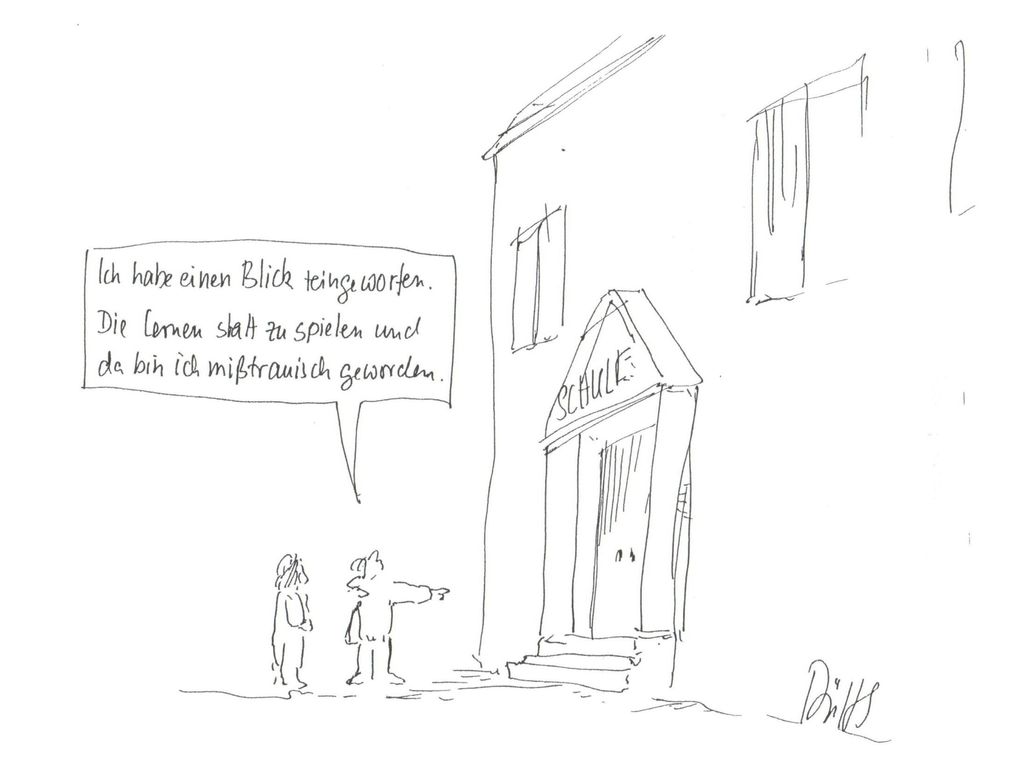 Ich habe einen Blick reingeworfen.
Die lernen statt zu spielen und
da bin ich mißtrauisch geworden.
SCHULE